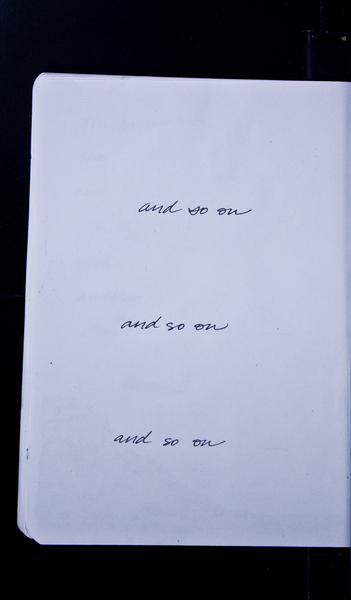 and so on
and so on
and so on